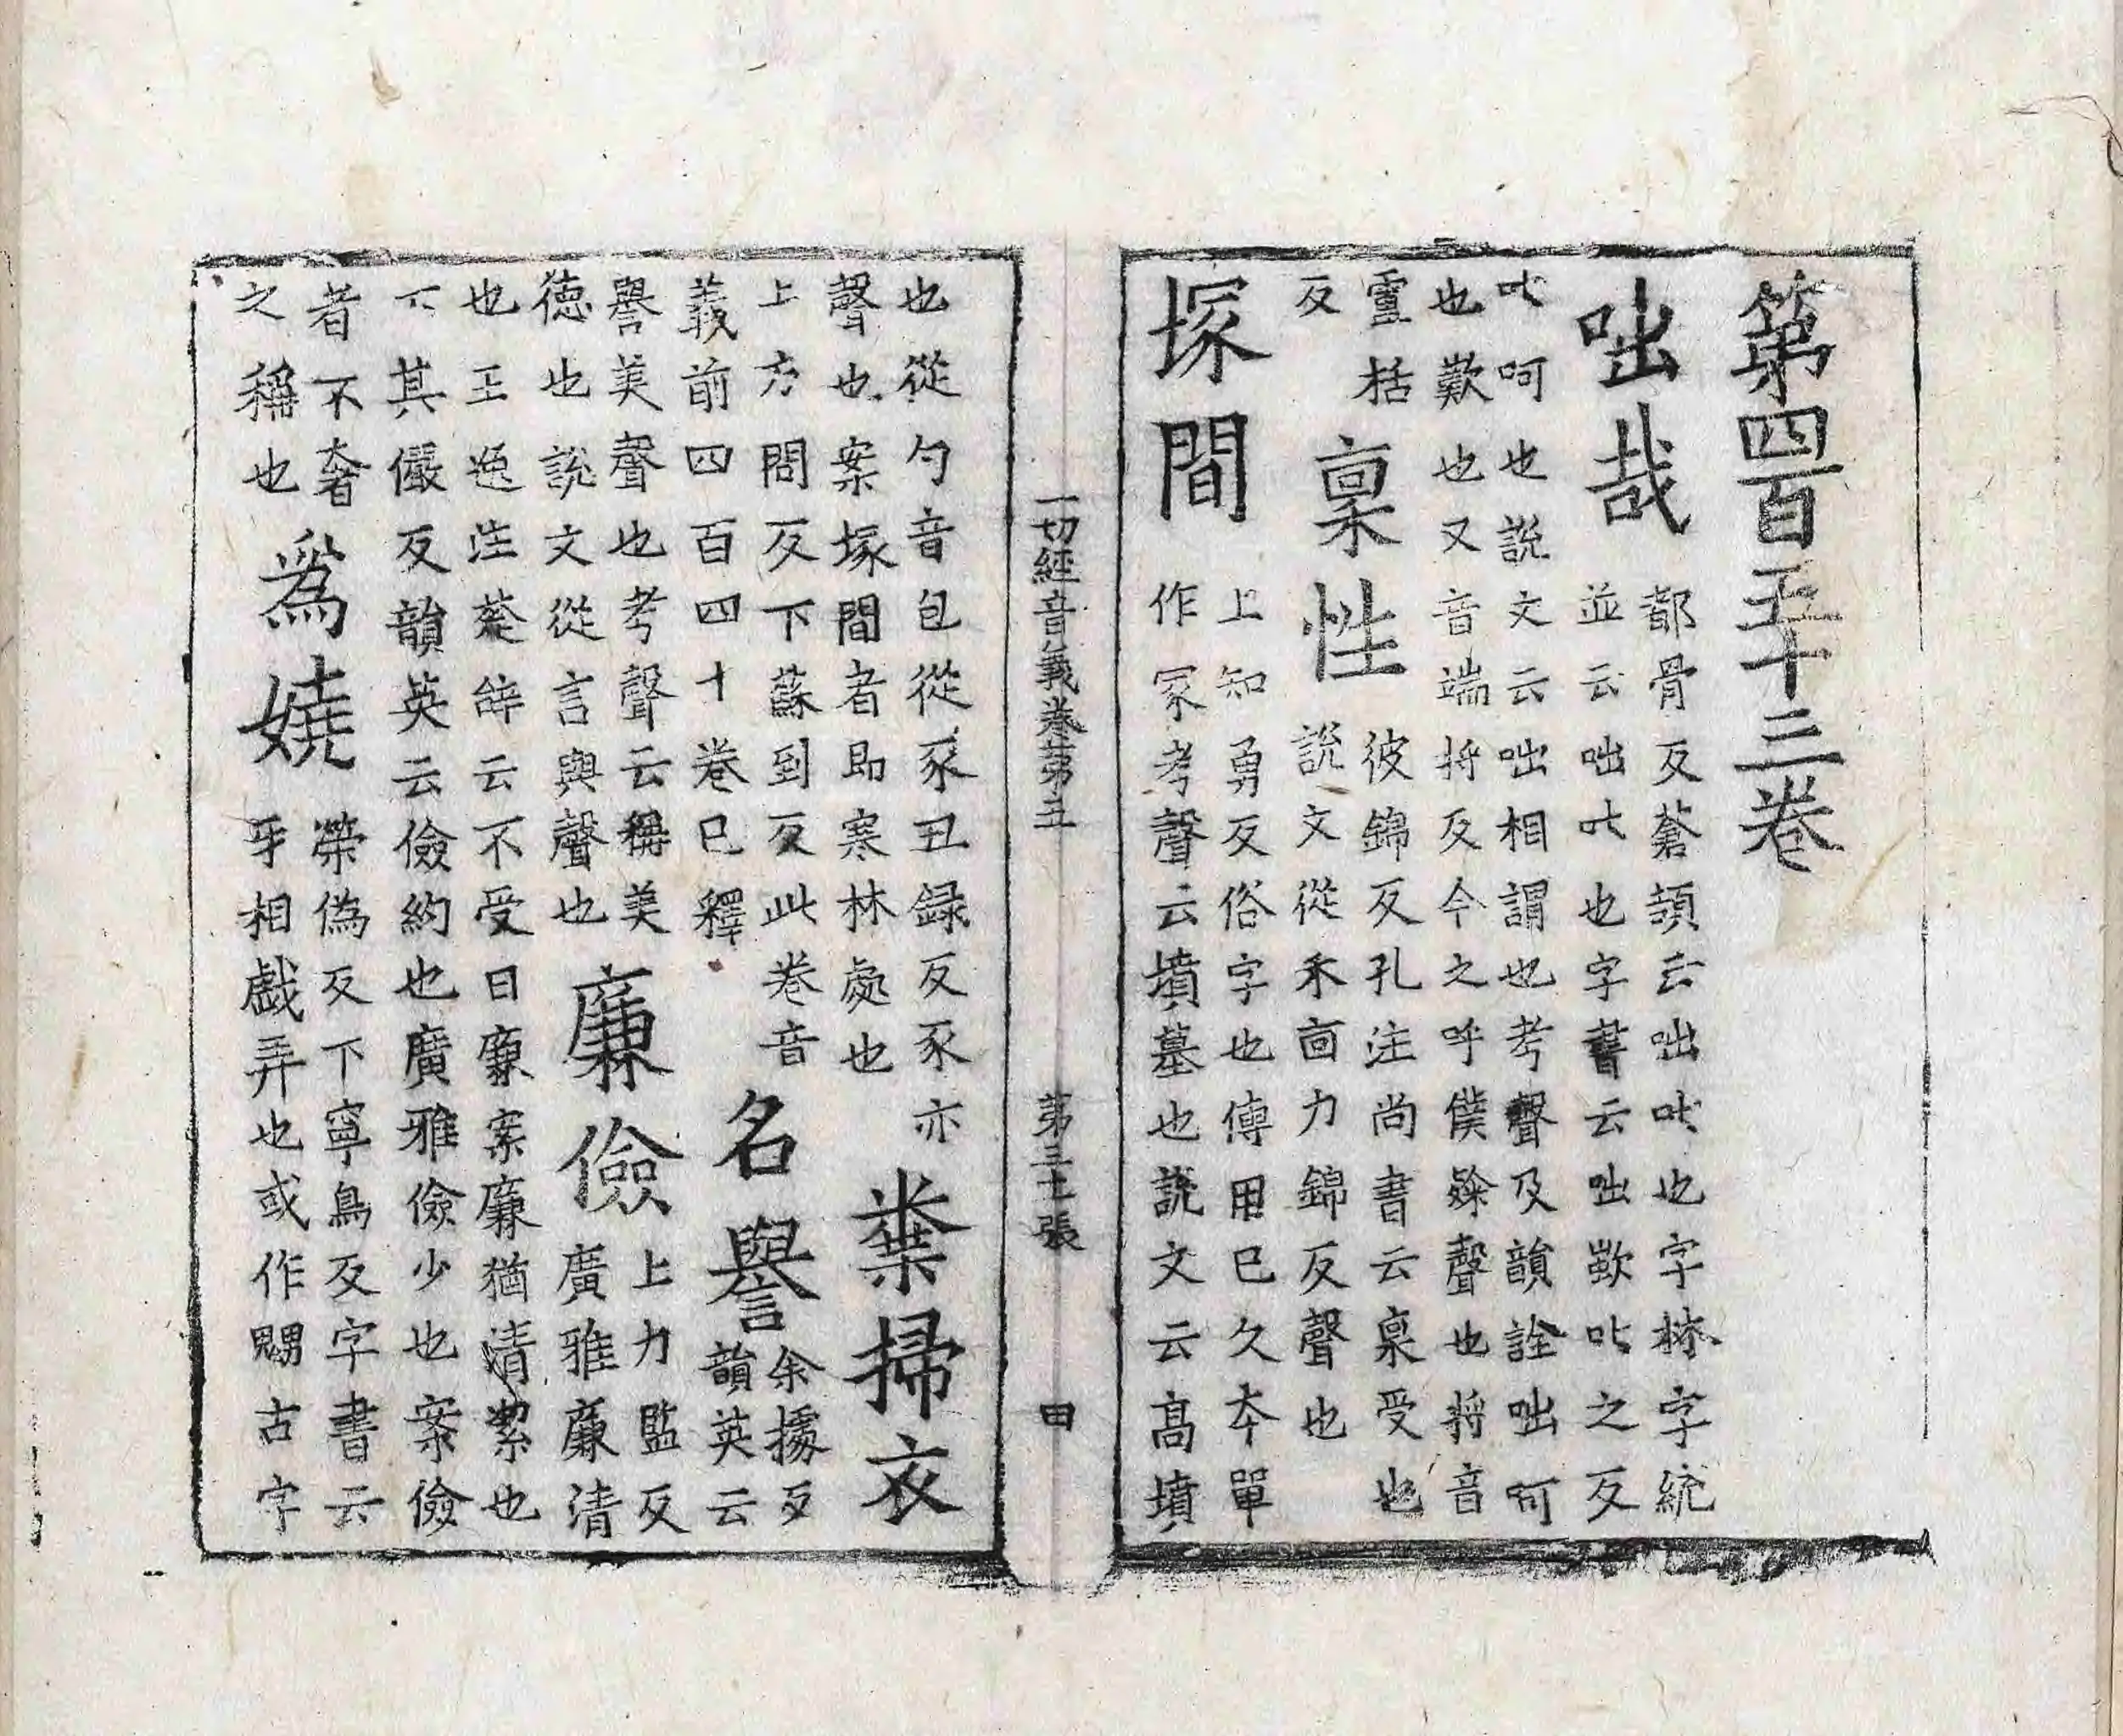 第四百五十三卷
咄哉
都骨反蒼頡云咄𠮟也字林字統
並云咄𠮟也字書云咄歎𠮟之反
𠮟呵也說文云咄相謂也考聲及韻詮咄呵
也歎也又音端将反今之呼僕𨽻聲也将音
靊括
反
稟性
彼錦反孔注尚書云稟受也
說文從禾㐭力錦反聲也
塚間
上知勇反俗字也傳用已久本單
作冢考聲云墳墓也說文云高墳
一切經音義卷第五 第三七張 田
也從勹音包從豕丑録反豕亦
聲也案塚間者即寒林處也
糞掃衣
上方問反下蘇到反此卷音
義前四百四十卷已釋
名譽
余據反
韻英云
譽美聲也考聲云稱美
德也說文從言與聲也
廉儉
上力監反
廣雅廉清
也王逸注楚辝云不受曰廉案廉猶清絜也
下其儼反韻英云儉約也廣雅儉少也案儉
者不奢
之稱也
為嬈
榮偽反下寧鳥反字書云
乎相戲弄也或作嬲古字